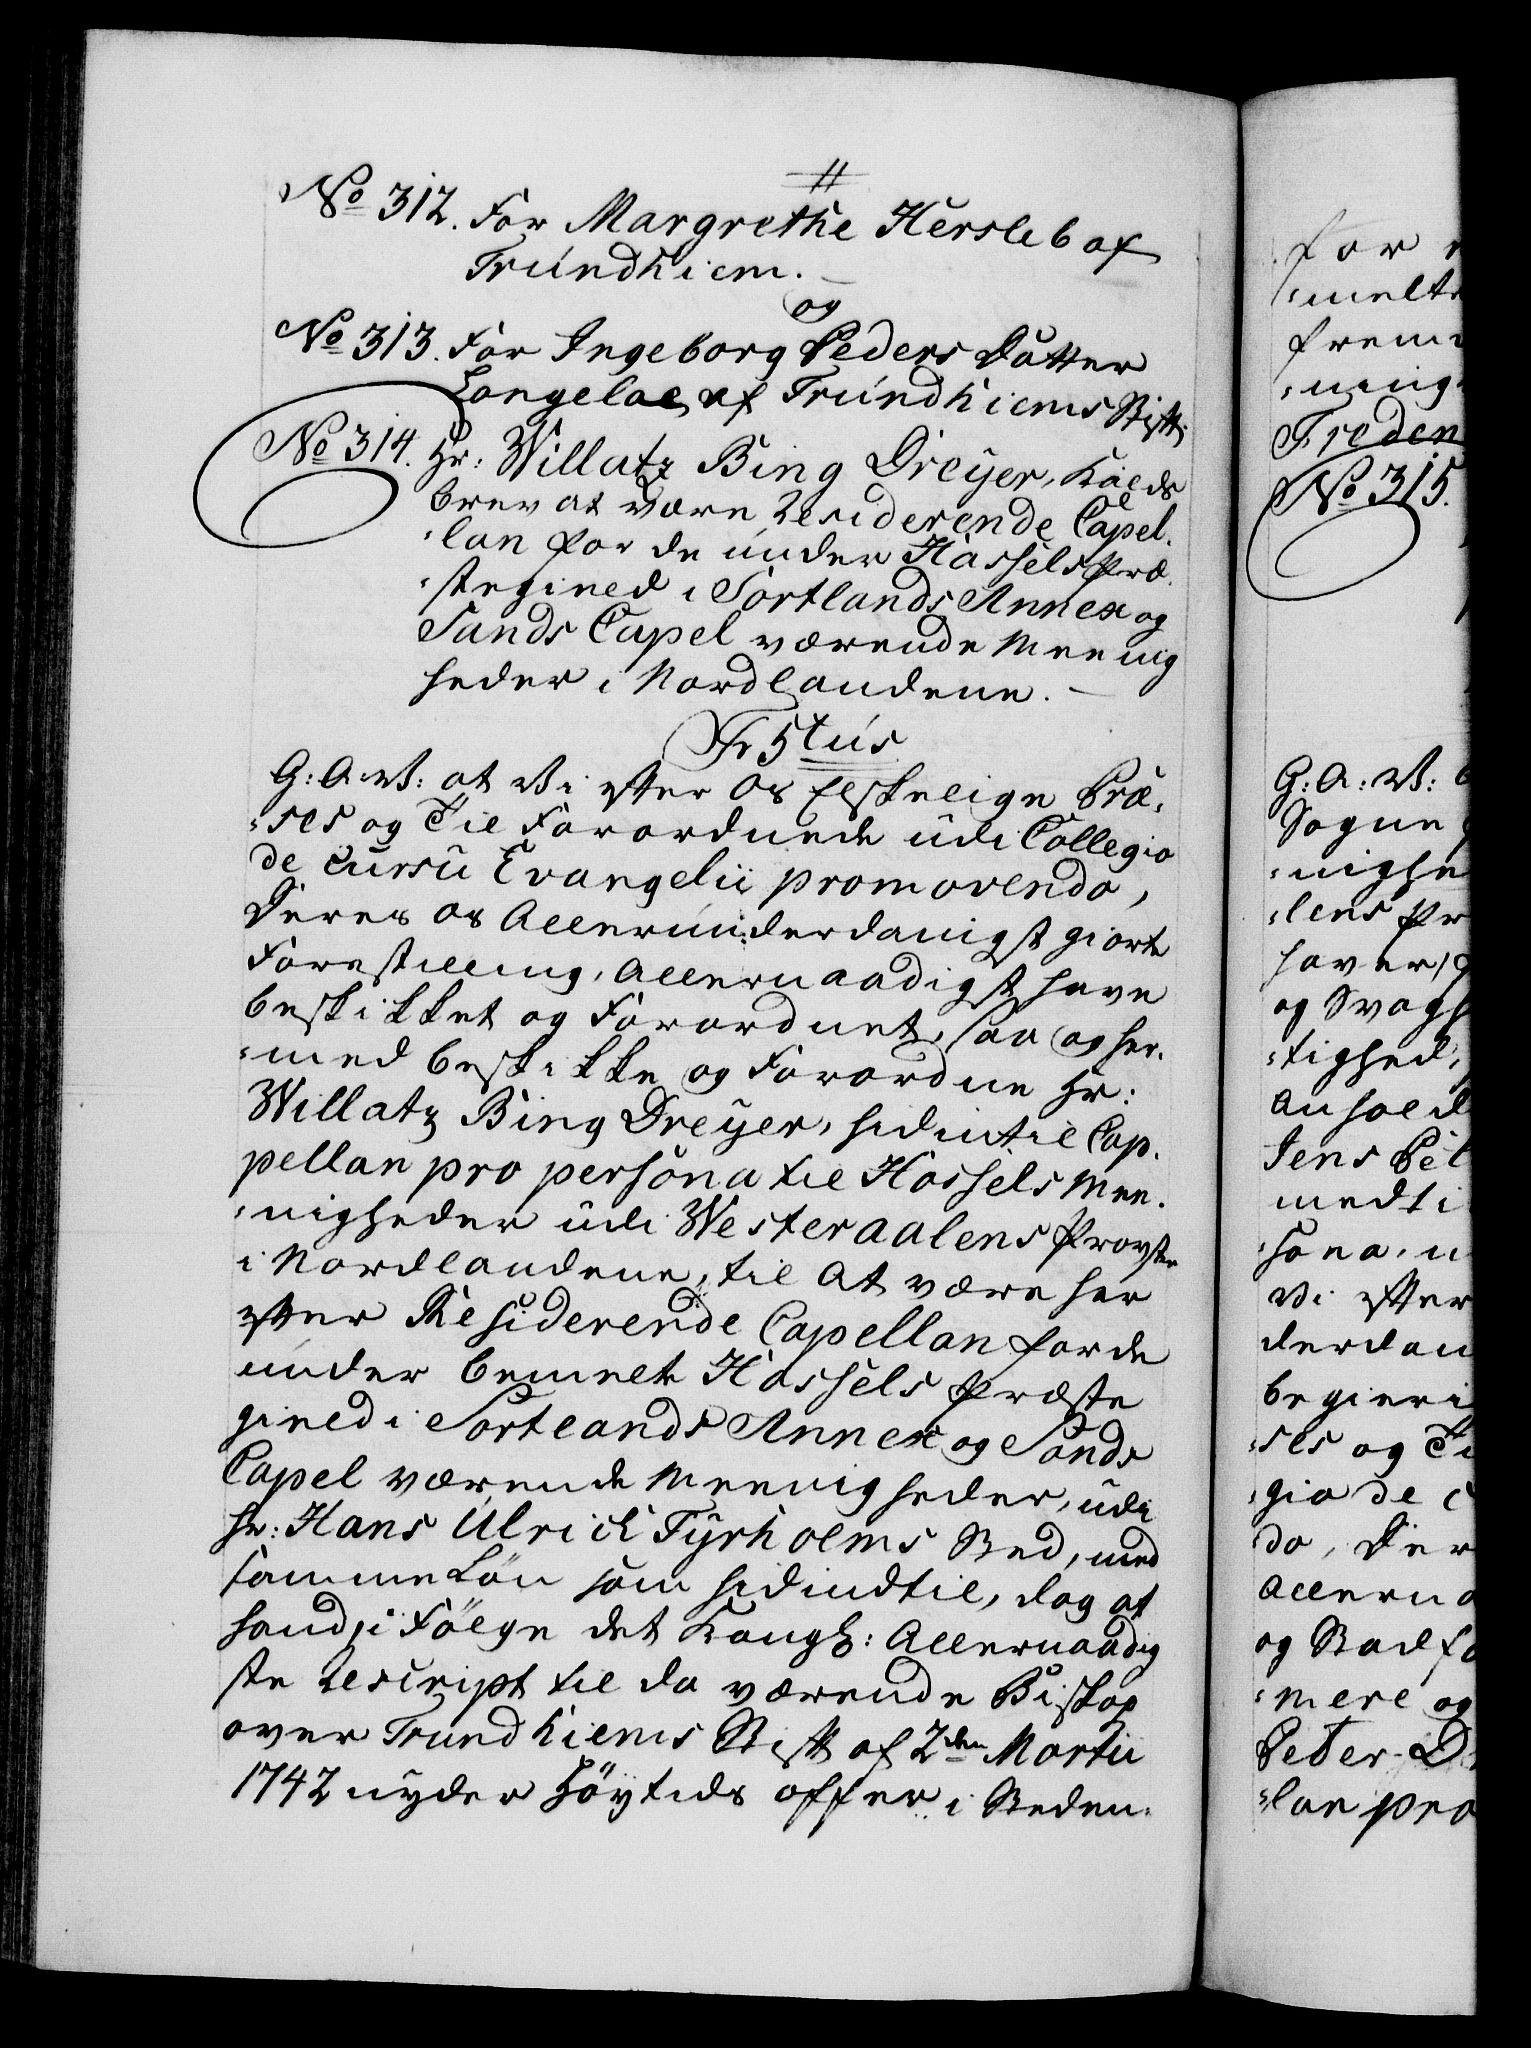 //
No 312. For Margrethe Hersleb af
Trundhiem. –
og
No 313. For Ingeborg Peders Datter
Langeloe af Trundhiems Stift.
No 314. Hr: Willatz Bing Dreyer, Kalds
brev at være Residerende Capel-
:lan for de under Hassels Præ-
:stegield i Sortlands Annex og
Sands Capel værende Meenig
heder i Nordlandene. –
Fr 5tus
G: A: V: at Vi efter Os Elskelige Præ-
:ses og Til Forordnede udi Collegio
de cursu Evangelii promovendo,
Deres Os Allerun:derdanigst giorte
Forestilling, Allernaadigst have
beskikket og Forordnet, saa og her-
:med beskikke og Forordne Hr:
Willatz Bing Dreyer, hidintil Cap-
pellan pro persona til Hassels Mee-
:nigheder udi Westeraalens Provstie
i Nordlandene, til at være her
efter Residerende Capellan for de
under bemelte Hassels Præste
gield i Sortlands Annex og Sands
Capel værende Meenigheder, udi
Hr: Hans Ulrich Tyrholms Sted, med
samme Løn som hidindtil, dog at
hand, i Følge det Kongl: Allernaadig
ste Rescript til da værende Biskop
over Trundhiems Stift af 2den Martii
1742 nyder Høytids offer i Steden
for
:melte
frem
:ning
Freden
No 315.
G: A: V:
Sogne
:nighe
:lens Pr
haver
og Svagh
:tighed,
Anholde
Jens Pet
medti
sona, u
Vi efter
derdan
begieri
ses og Ti
gio de c
do, Der
Allerna
og Stadfæ
:mere og
Peter D
:lan pro